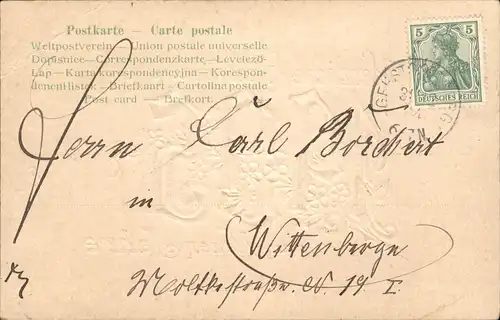 Postkarte – Carte postale
Weltpostverein – Union postale universelle
Dopisnice – Correspondenzkarte – Levelező-
Lap – Karta korespondencyjna – Korespon-
denčni listek – Briefkaart – Cartolina postale
Post card – Brefkort.
5 5
DEUTSCHES REICH
Herrn Carl Borchert
in
Wittenberge
Moltkestraße N. 19 I.